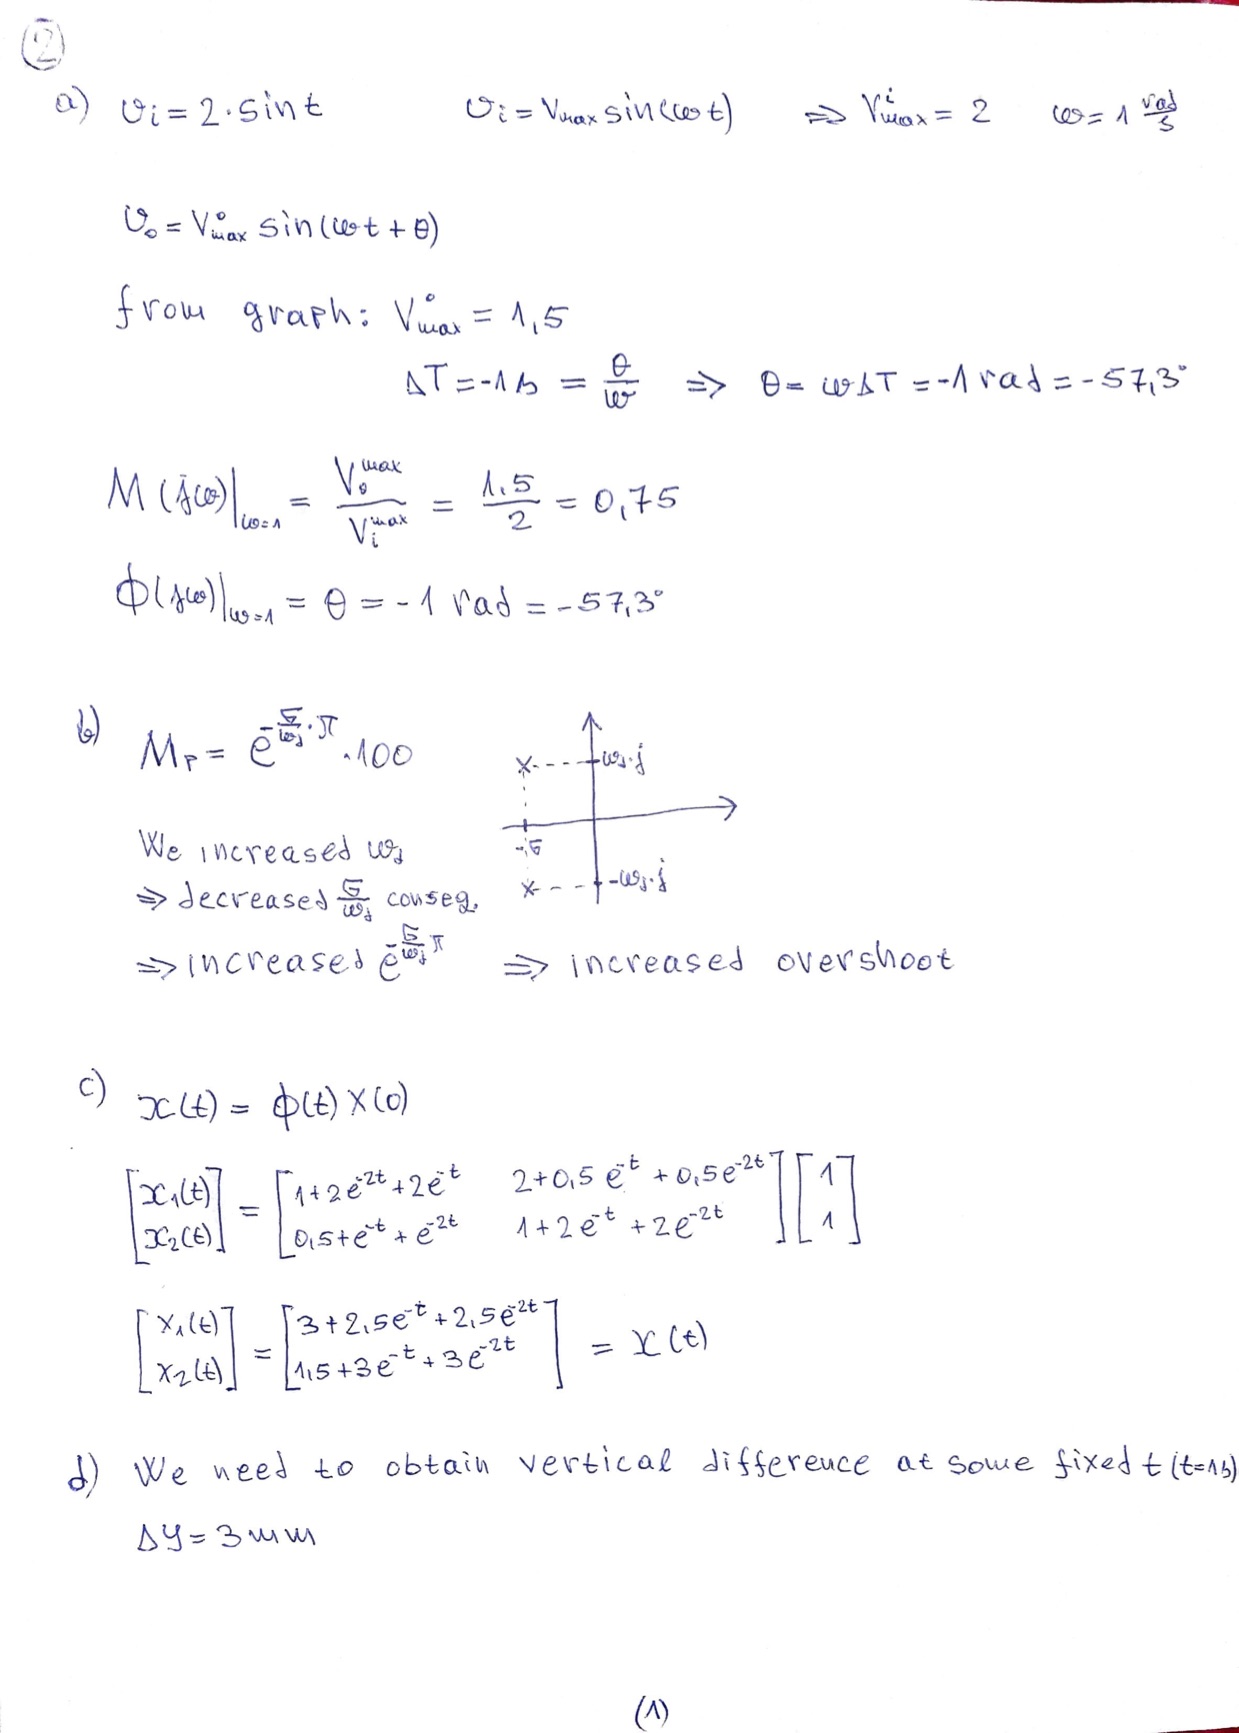 2
a) v_i = 2·sin t    v_i = V_max sin(ωt)    ⇒ V^i_max = 2    ω = 1 rad/s
v_o = V^o_max sin(ωt + θ)
from graph: V^o_max = 1,5
ΔT = -1s = θ/ω ⇒ θ = ωΔT = -1 rad = -57,3°
M(jω)|_ω=1 = V_o^max / V_i^max = 1.5/2 = 0,75
ϕ(jω)|_ω=1 = θ = -1 rad = -57,3°
b) M_P = e^(-σ/ω_d · π) · 100
ω_d·j
-σ
-ω_d·j
We increased ω_d
⇒ decreased σ/ω_d conseq.
⇒ increased e^(-σ/ω_d π) ⇒ increased overshoot
c) x(t) = ϕ(t) X(0)
[x_1(t)] = [1+2e^-2t+2e^-t    2+0,5e^-t+0,5e^-2t] [1]
[x_2(t)]   [0,5+e^-t+e^-2t    1+2e^-t+2e^-2t] [1]
[x_1(t)] = [3+2,5e^-t+2,5e^-2t] = x(t)
[x_2(t)]   [1,5+3e^-t+3e^-2t]
d) We need to obtain vertical difference at some fixed t (t=1s)
Δy = 3mm
(1)